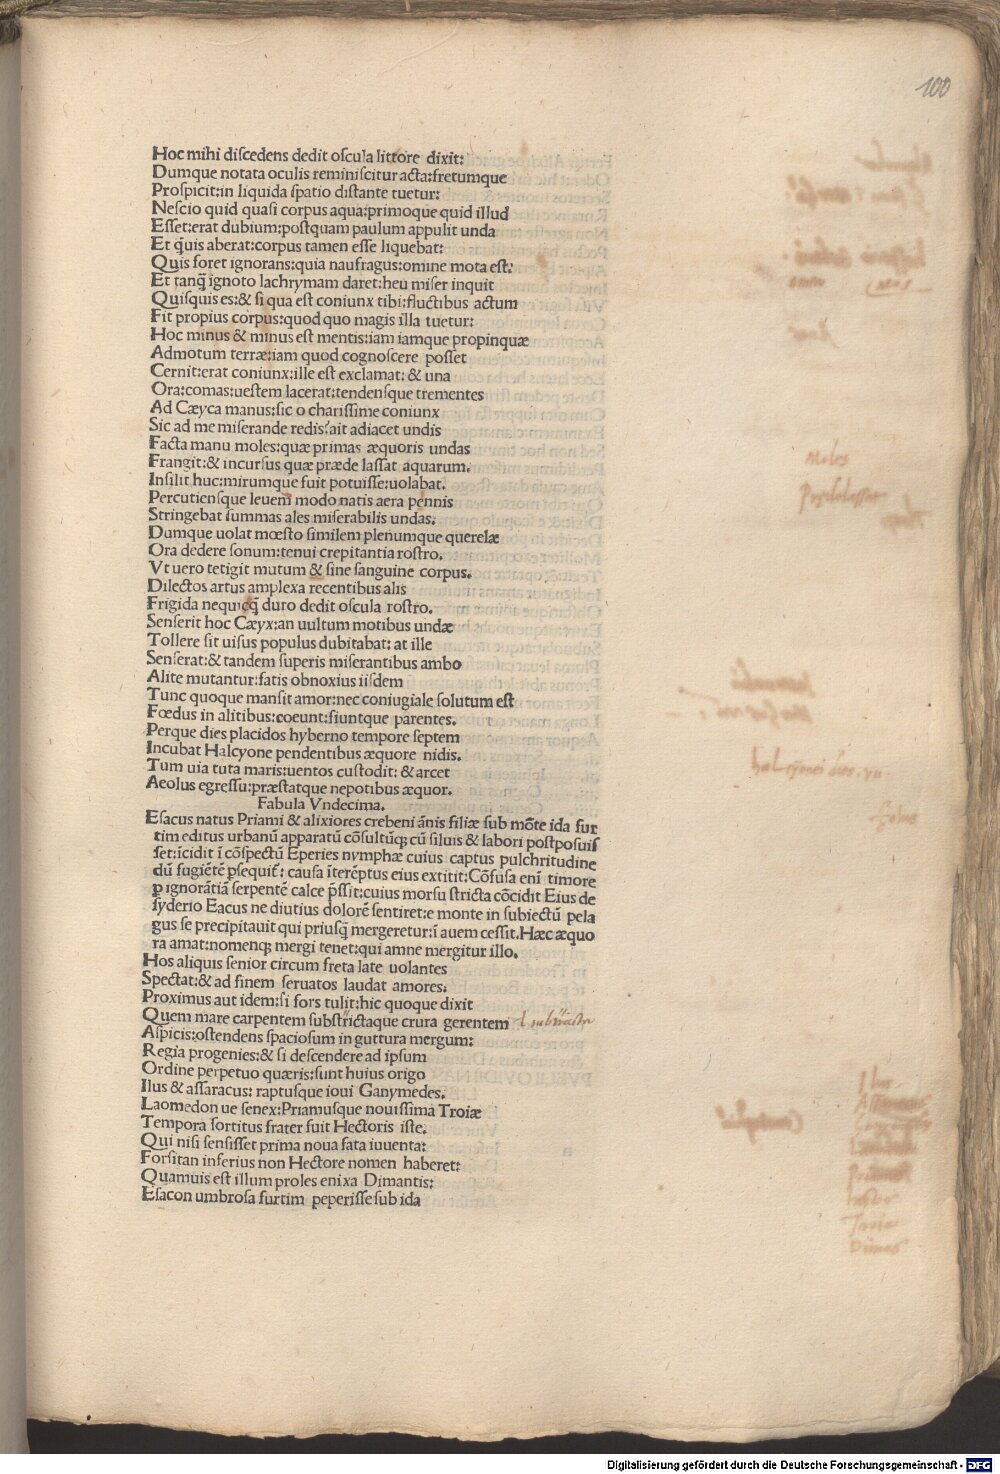 100
Hoc mihi diſcedens dedit oſcula littore dixit:
Dumque notata oculis reminiſcitur acta:fretumque
Proſpicit:in liquida ſpatio diſtante tuetur:
Neſcio quid quaſi corpus aqua:primoque quid illud
Eſſet:erat dubium:poſtquam paulum appulit unda
Et q̃uis aberat:corpus tamen eſſe liquebat:
Quis foret ignorans:quia naufragus:omine mota eſt:
Et tanq̃ ignoto lachrymam daret:heu miſer inquit
Quiſquis es:& ſi qua eſt coniunx tibi:fluctibus actum
Fit propius corpus:quod quo magis illa tuetur:
Hoc minus & minus eſt mentis:iam iamque propinquæ
Admotum terræ:iam quod cognoſcere poſſet
Cernit:erat coniunx:ille eſt exclamat: & una
Ora:comas:ueſtem lacerat:tendenſque trementes
Ad Cæyca manus:ſic o chariſſime coniunx
Sic ad me miſerande redis?ait adiacet undis
Facta manu moles:quæ primas æquoris undas
Frangit:& incurſus quæ præde laſſat aquarum.
Inſilit huc:mirumque fuit potuiſſe:uolabat.
Percutienſque leuem modo natis aera pennis
Stringebat ſummas ales miſerabilis undas.
Dumque uolat mœſto ſimilem plenumque querelæ
Ora dedere ſonum:tenui crepitantia roſtro.
Vt uero tetigit mutum & ſine ſanguine corpus.
Dilectos artus amplexa recentibus alis
Frigida nequicq̃ duro dedit oſcula roſtro.
Senſerit hoc Cæyx:an uultum motibus undæ
Tollere ſit uiſus populus dubitabat: at ille
Senſerat:& tandem ſuperis miſerantibus ambo
Alite mutantur:fatis obnoxius iiſdem
Tunc quoque manſit amor:nec coniugiale ſolutum eſt
Fœdus in alitibus:coeunt:fiuntque parentes.
Perque dies placidos hyberno tempore ſeptem
Incubat Halcyone pendentibus æquore nidis.
Tum uia tuta maris:uentos cuſtodit: & arcet
Aeolus egreſſu:præſtatque nepotibus æquor.
Fabula Vndecima.
Eſacus natus Priami & alixiores crebeni ãnis filiæ ſub mõte ida fur
tim editus urbanũ apparatũ cõſultũq; cũ ſiluis & labori poſtpoſuiſ
ſet:ĩcidit ĩ cõſpectũ Eperies nymphæ cuius captus pulchritudine
dũ fugiẽtẽ ꝑſequit᷑: cauſa ĩterẽptus eius extitit:Cõfuſa enĩ timore
ꝑ ignorãtiã ſerpentẽ calce p̃ſſit:cuius morſu ſtricta cõcidit Eius de
ſyderio Eacus ne diutius dolorẽ ſentiret:e monte in ſubiectũ pela
gus ſe precipitauit qui priuſq̃ mergeretur:ĩ auem ceſſit.Hæc æquo
ra amat:nomenq; mergi tenet:qui amne mergitur illo.
Hos aliquis ſenior circum freta late uolantes
Spectat:& ad finem ſeruatos laudat amores:
Proximus aut idem:ſi fors tulit:hic quoque dixit
Quem mare carpentem ſubſtrictaque crura gerentem
Aſpicis:oſtendens ſpacioſum in guttura mergum:
Regia progenies:& ſi deſcendere ad ipſum
Ordine perpetuo quæris:ſunt huius origo
Ilus & aſſaracus: raptuſque ioui Ganymedes.
Laomedon ue ſenex:Priamuſque nouiſſima Troiæ
Tempora ſortitus frater fuit Hectoris iſte.
Qui niſi ſenſiſſet prima noua fata iuuenta:
Forſitan inferius non Hectore nomen haberet:
Quamuis eſt illum proles enixa Dimantis:
Eſacon umbroſa furtim peperiſſe ſub ida
moles
halcyonei dies. vii
Digitalisierung gefördert durch die Deutsche Forschungsgemeinschaft - DFG